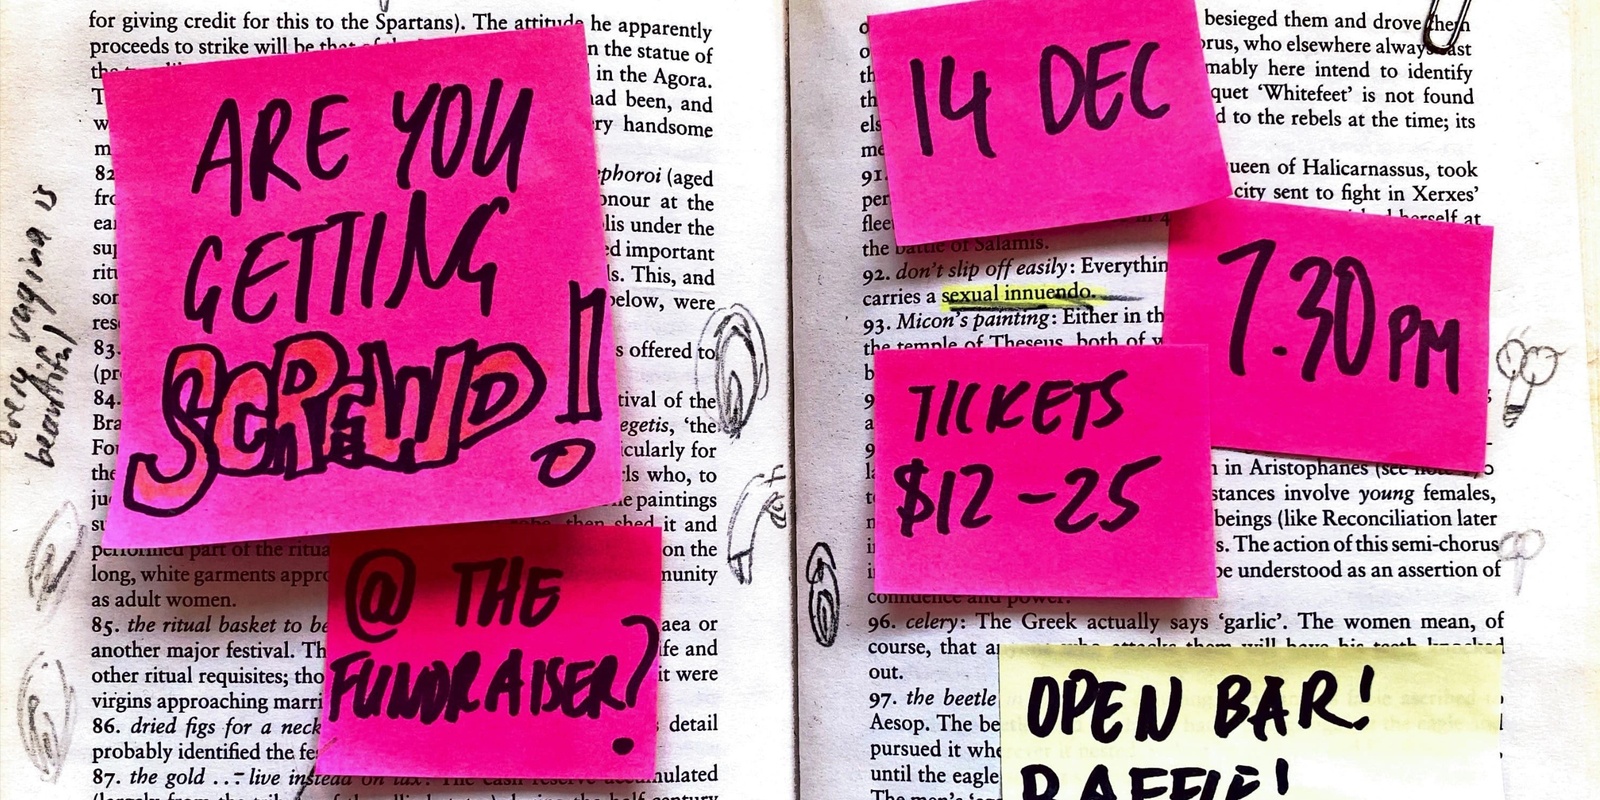 for giving credit for this to the Spartans). The attitude he apparently
proceeds to strike will be that of the
n the statue of
in the Agora.
had been, and
ery handsome
82
phoroi (aged
onour at the
under the
ed important
This, and
below, were
83.
s offered to
84.
tival of the
egetis, ‘the
icularly for
who, to
paintings
then shed it and
performed part of the ritua
on the
long, white garments appro
munity
as adult women.
85. the ritual basket to be
aea or
another major festival. Th
ife and
other ritual requisites; tho
it were
virgins approaching marri
86. dried figs for a neck
detail
probably identified the fes
87. the gold ... live instead on tax: The cash reserve accumulated
ARE YOU
GETTING
SCREWED!
@ THE
FUNDRAISER?
every vagina is
beautiful
14 DEC
7.30PM
TICKETS
$12-25
OPEN BAR!
RAFFLE!
besieged them and drove them
orus, who elsewhere always cast
mably here intend to identify
quet ‘Whitefeet’ is not found
d to the rebels at the time; its
91.
ueen of Halicarnassus, took
city sent to fight in Xerxes’
herself at
the battle of Salamis.
92. don’t slip off easily: Everythin
carries a sexual innuendo.
93. Micon’s painting: Either in th
the temple of Theseus, both of w
in Aristophanes (see note
stances involve young females,
beings (like Reconciliation later
s. The action of this semi-chorus
be understood as an assertion of
confidence and power.
96. celery: The Greek actually says ‘garlic’. The women mean, of
course, that a who attacks them will have his teeth knocked
out.
97. the beetle
Aesop. The be
pursued it whe
until the eagle